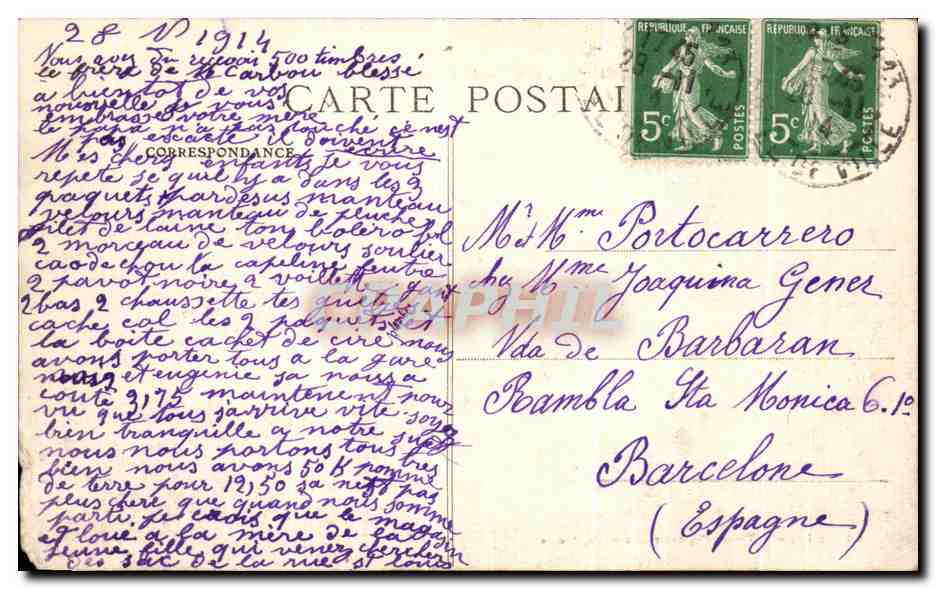 28 V 1914
Vous avez du recevoir 500 timbres
le frere de Carbou blessé
a bientot de vos
nouvelle je vous
embrasse votre mère
le papa n'a pas ce n'est
pas
CARTE POSTALE
CORRESPONDANCE
Mes chers enfants je vous
repete se quil y a dans les 3
paquets pardesus manteau
velours manteau de peluche
filet de laine ton bolero
2 morceau de velours soulier
caodechou la capeline feutre
2 pavot noire 2 tes guetre
2 bas 2 chaussette
cache col les 2 paquets et
la boite cachet de cire nous
avons porter tous a la gare
et eugenie sa nous a
couté 2,75 maintenent pour
vu que tous sarrive vite soyez
bien tranquille a notre sujet
nous nous portons tous tres
bien nous avons 50 K pomme
de terre pour 12,50 sa n'est pas
plus chere que quand nous somme
parti que le magasin
et loué a la mère de la
jeune fille qui venez chercher
des sac de la rue st louis
REPUBLIQUE FRANÇAISE
5c POSTES
REPUBLIQUE FRANÇAISE
5c POSTES
Mr & Mme Portocarrero
chez Mme Joaquima Gener
Vda de Barbaran
Rambla Sta Monica 6.1º
Barcelone
(Espagne)
CPAPHIL